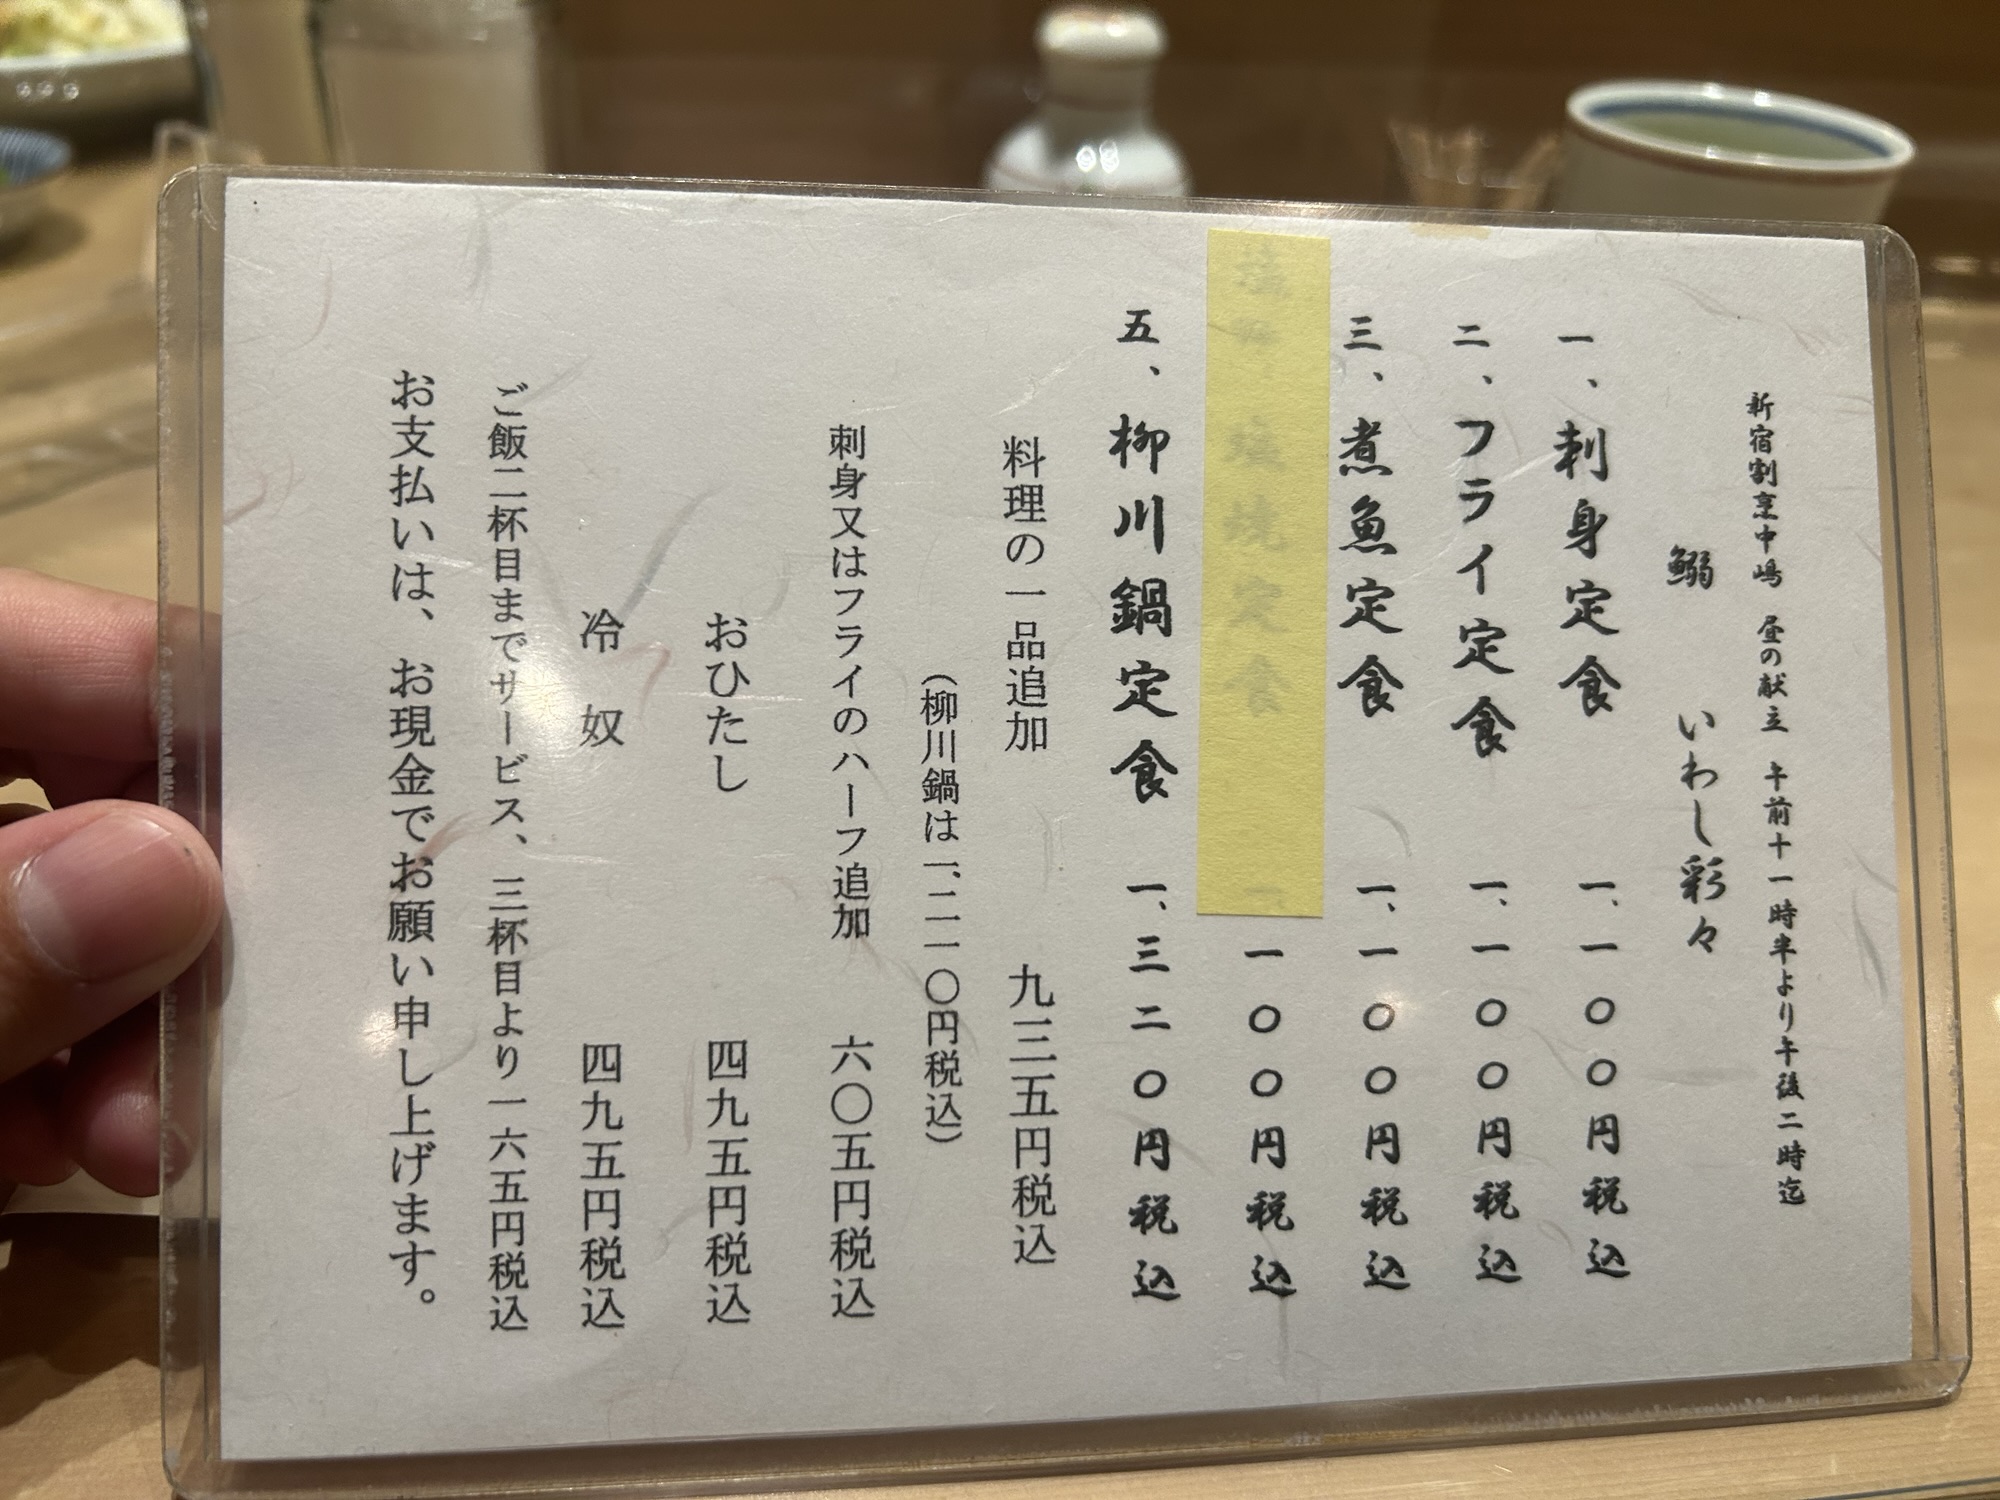 新宿割烹中嶋 昼の献立 午前十一時半より午後二時迄
鰯 いわし彩々
一、刺身定食 一、一〇〇円税込
二、フライ定食 一、一〇〇円税込
三、煮魚定食 一、一〇〇円税込
塩焼定食 一、一〇〇円税込
五、柳川鍋定食 一、三二〇円税込
料理の一品追加 九三五円税込
（柳川鍋は一、二一〇円税込）
刺身又はフライのハーフ追加 六〇五円税込
おひたし 四九五円税込
冷奴 四九五円税込
ご飯二杯目までサービス、三杯目より一六五円税込
お支払いは、お現金でお願い申し上げます。